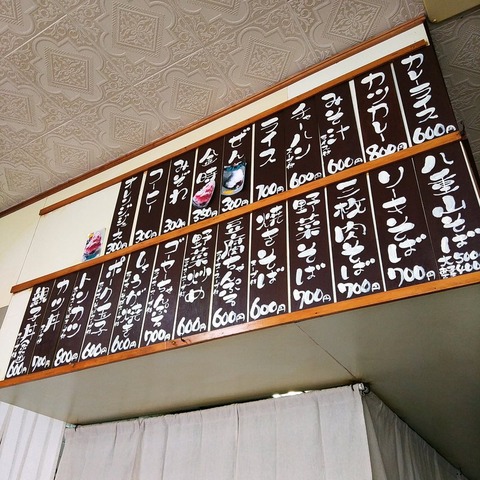 カレーライス 600円
カツカレー 800円
みそ汁 600円
チャーハン 600円
ライス
ぜんざい 300円
金時 350円
みぞれ 300円
コーヒー
オレンジジュース 300円
八重山そば 大500
ソーキそば 700円
三枚肉そば 700円
野菜そば 700円
焼きそば 600円
豆腐ちゃんぷる 600円
野菜炒め 600円
ゴーヤちゃんぷる
しょうが焼き 600円
ポーク玉子 600円
トンカツ 800円
カツ丼 700円
親子丼